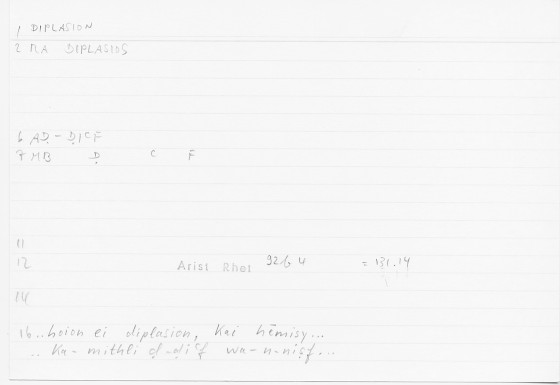 1 DIPLASION
2 RA DIPLASIOS
6 AḌ-ḌICF
7 MB Ḍ C F
11
12 Arist Rhet 92b4 = 131.14
14
16 ..hoion ei diplasion, kai hēmisy...
.. Ka-mithli ḍ-ḍiʿf wa-n-niṣf...